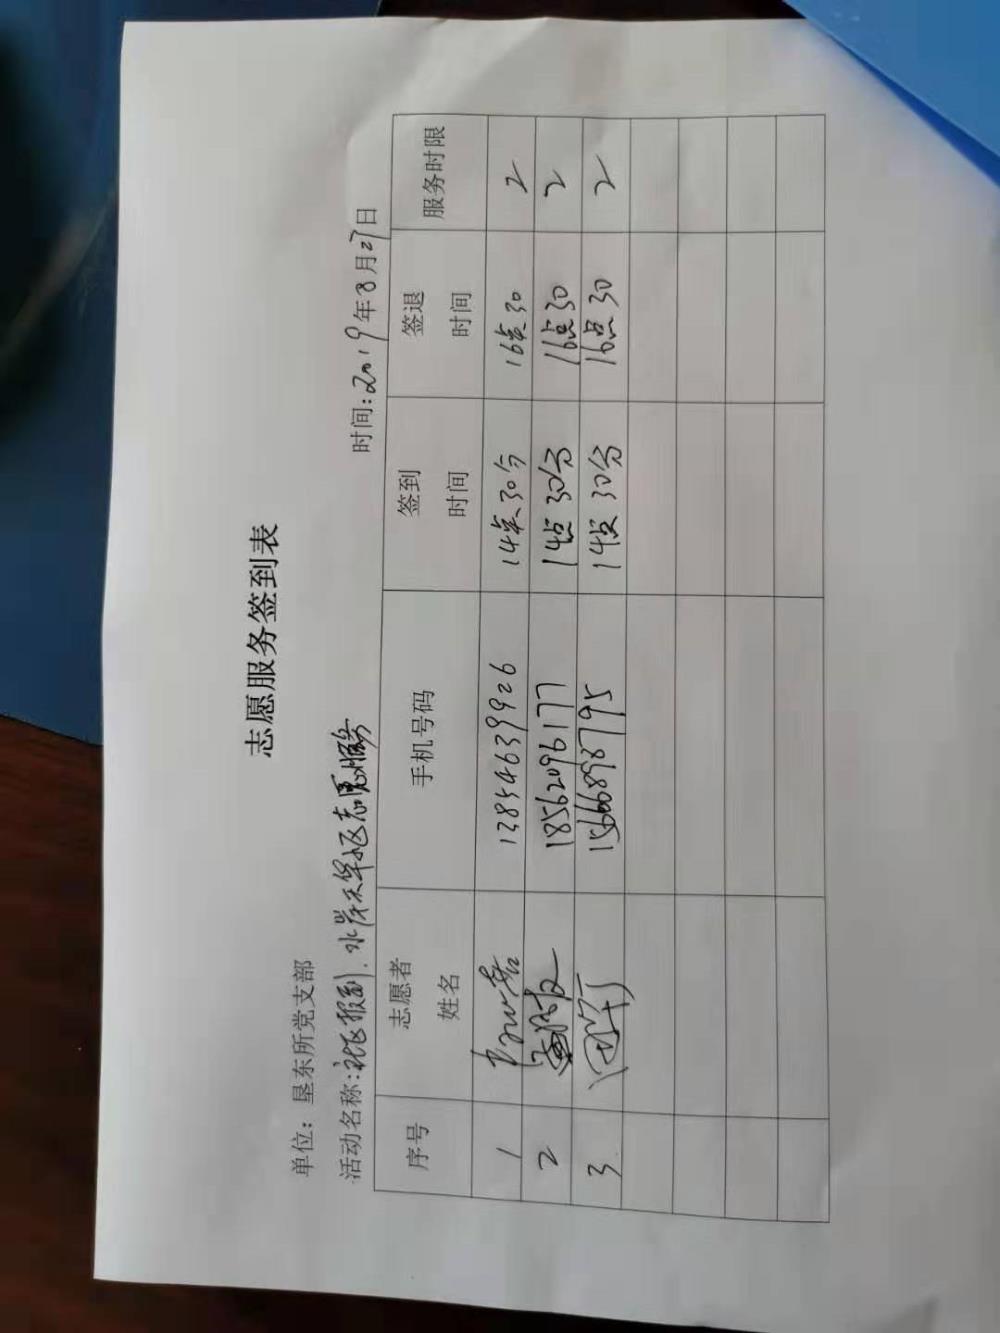 志愿服务签到表
单位：垦东所党支部
活动名称：社区报到.水岸天华小区志愿服务 时间：2019年8月27日
序号 志愿者姓名 手机号码 签到时间 签退时间 服务时限
1 14点30分 16点30 2
2 18562096177 14点30分 16点30 2
3 15666898795 14点30分 16点30 2